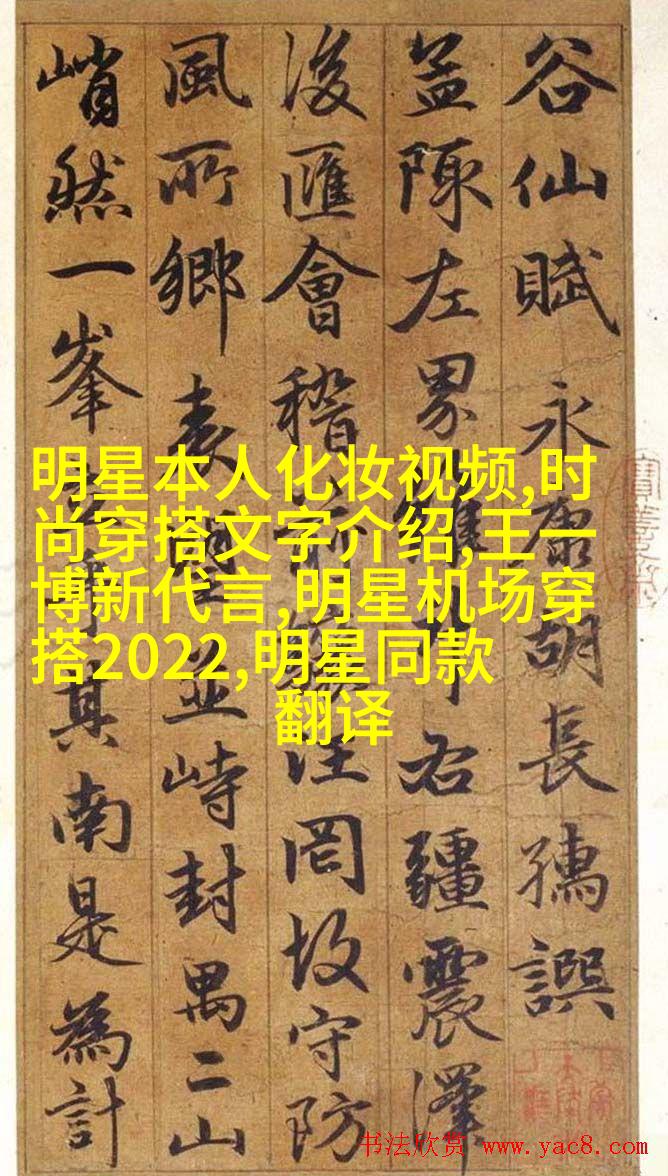 谷仙賦 永康胡長孺譔
盖陳左界右疆震澤
後匯會稽注罔守防
風所鄉表並峙封禺二山
峭然一峯其南是為計
明星本人化妆视频,时
尚穿搭文字介绍,王一
博新代言,明星机场穿
搭2022,明星同款
翻译
书法欣赏 www.yac8.com